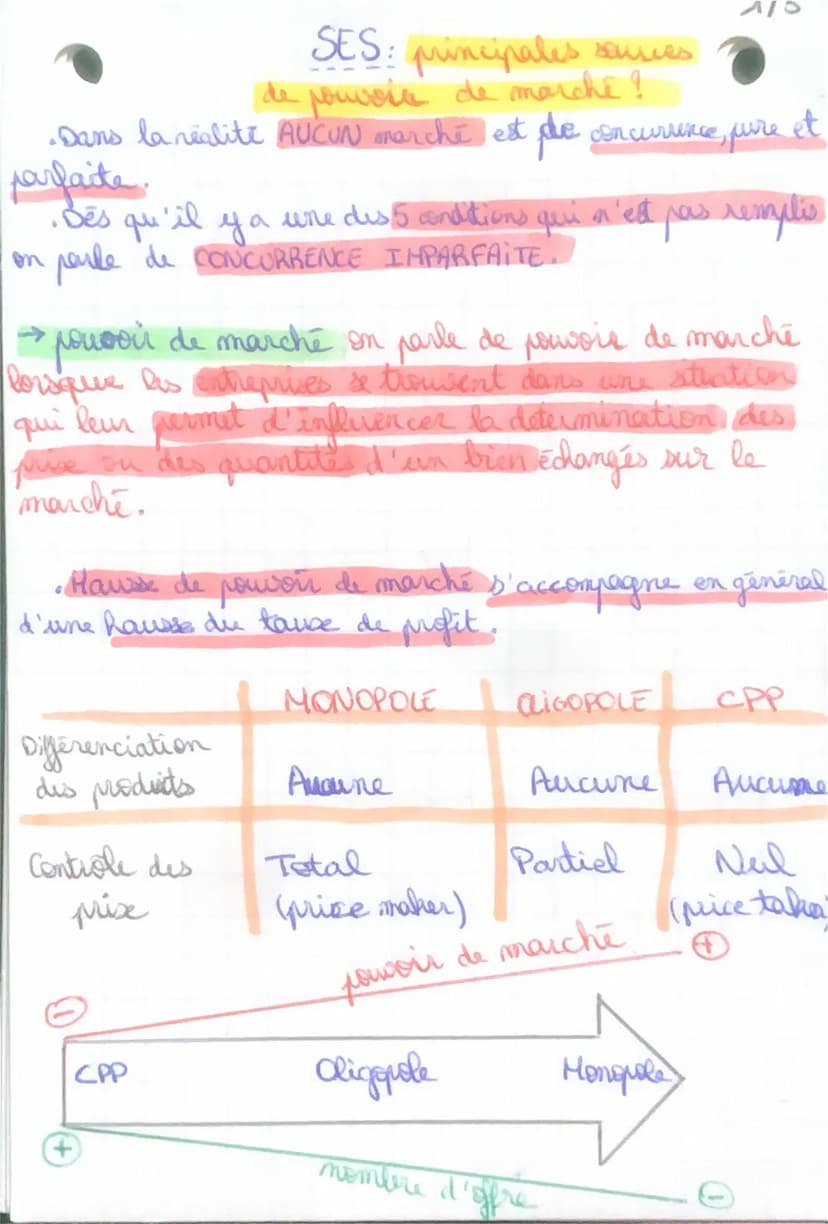 1/3
SES: principales sources
de pouvoir de marché?
.Dans la réalité AUCUN marché est de concurrence, pure et
parfaite.
.Dés qu'il y a une des 5 conditions qui n'est pas remplis
on parle de CONCURRENCE IMPARFAITE.
→ pouvoir de marché on parle de pouvoir de marché
lorsque les entreprises se trouvent dans une situation
qui leur permet d'influencer la détermination des
prix ou des quantités d'un bien échangés sur le
marché.
.Hausse de pouvoir de marché s'accompagne en général
d'une hausse du taux de profit.
MONOPOLE OLIGOPOLE CPP
Différenciation
des produits Aucune Aucune Aucune
Contrôle des Total Partiel Nul
prix (price maker) (price taker)
pouvoir de marché +
-
CPP Oligopole Monopole
+
nombre d'offre -